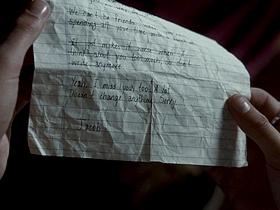 We can't be friends when
spending all your time with a
It just makes it worse when I
think about you too much, so don't
write anymore
Yeah, I miss you too. A lot.
Doesn't change anything. Sorry.
Jacob